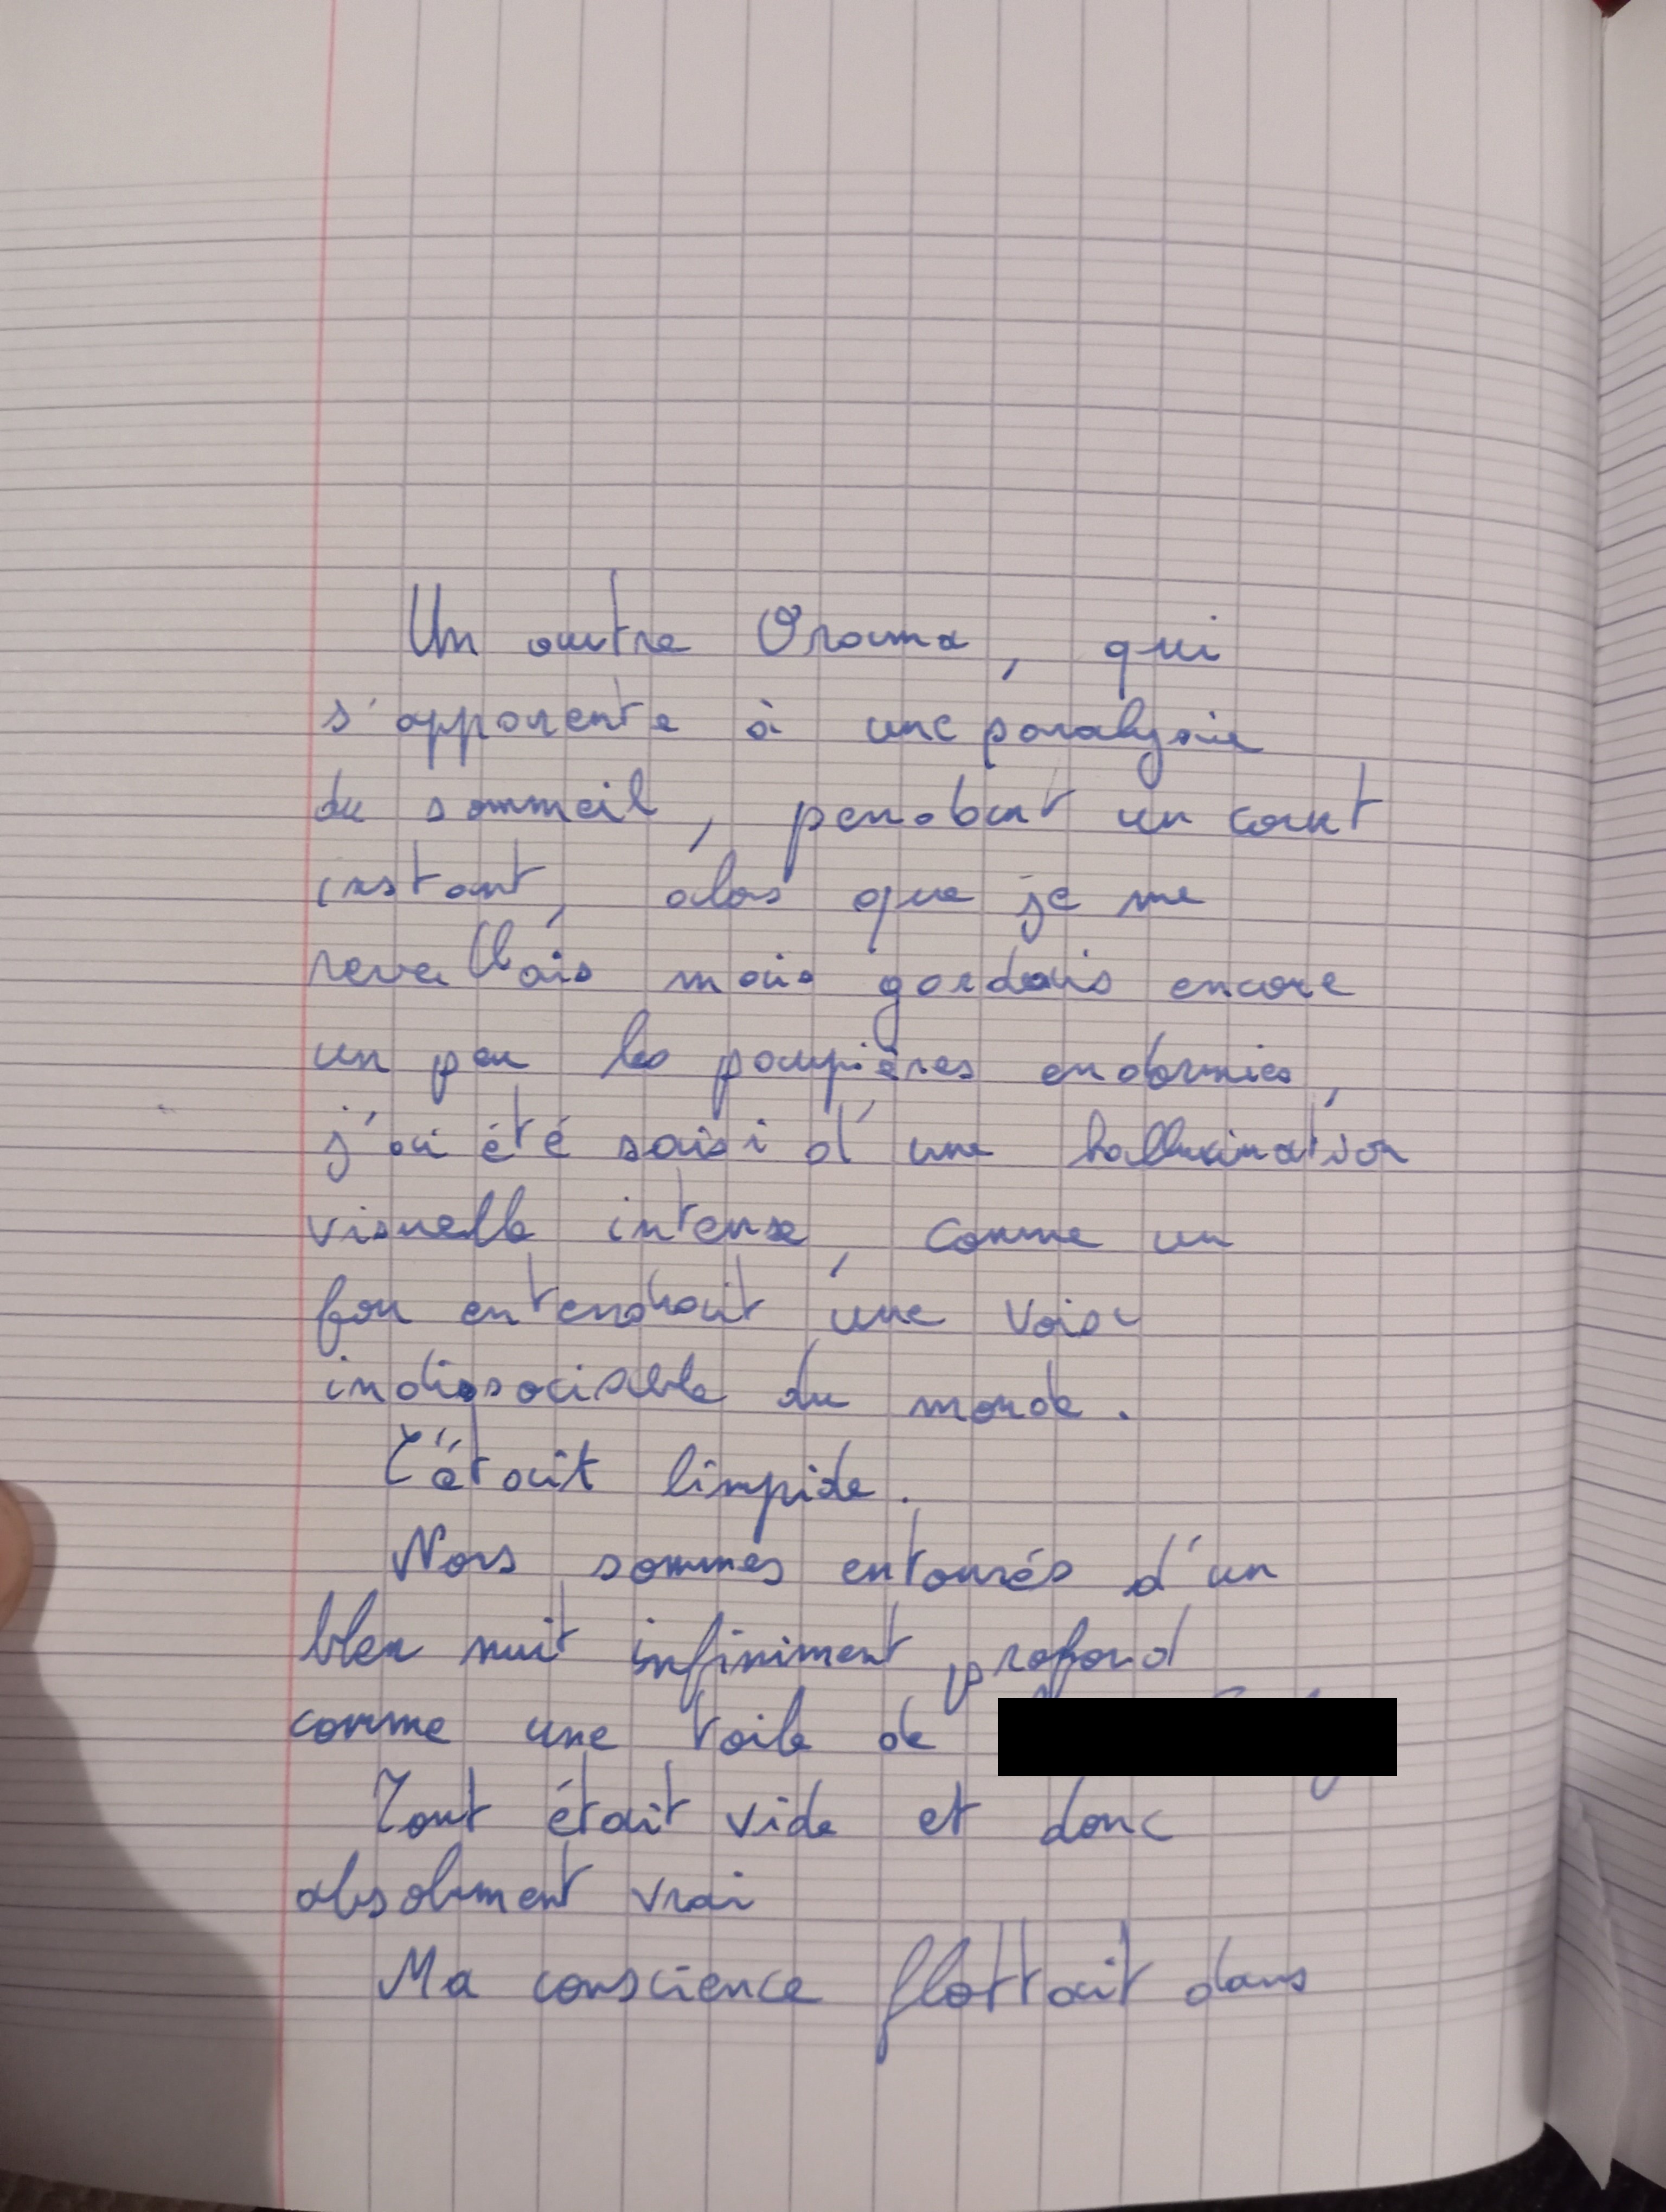 Un autre Orama, qui
s'apparente à une paralysie
du sommeil, pendant un court
instant, alors que je me
reveillais mais gardais encore
un peu les paupières endormies,
j'ai été saisi d'une hallucination
visuelle intense, comme un
fou entendrait une voix
indissociable du monde.
C'était limpide.
Nous sommes entourés d'un
bleu nuit infiniment profond
comme une toile de
Tout était vide et donc
absolument vrai
Ma conscience flottait dans